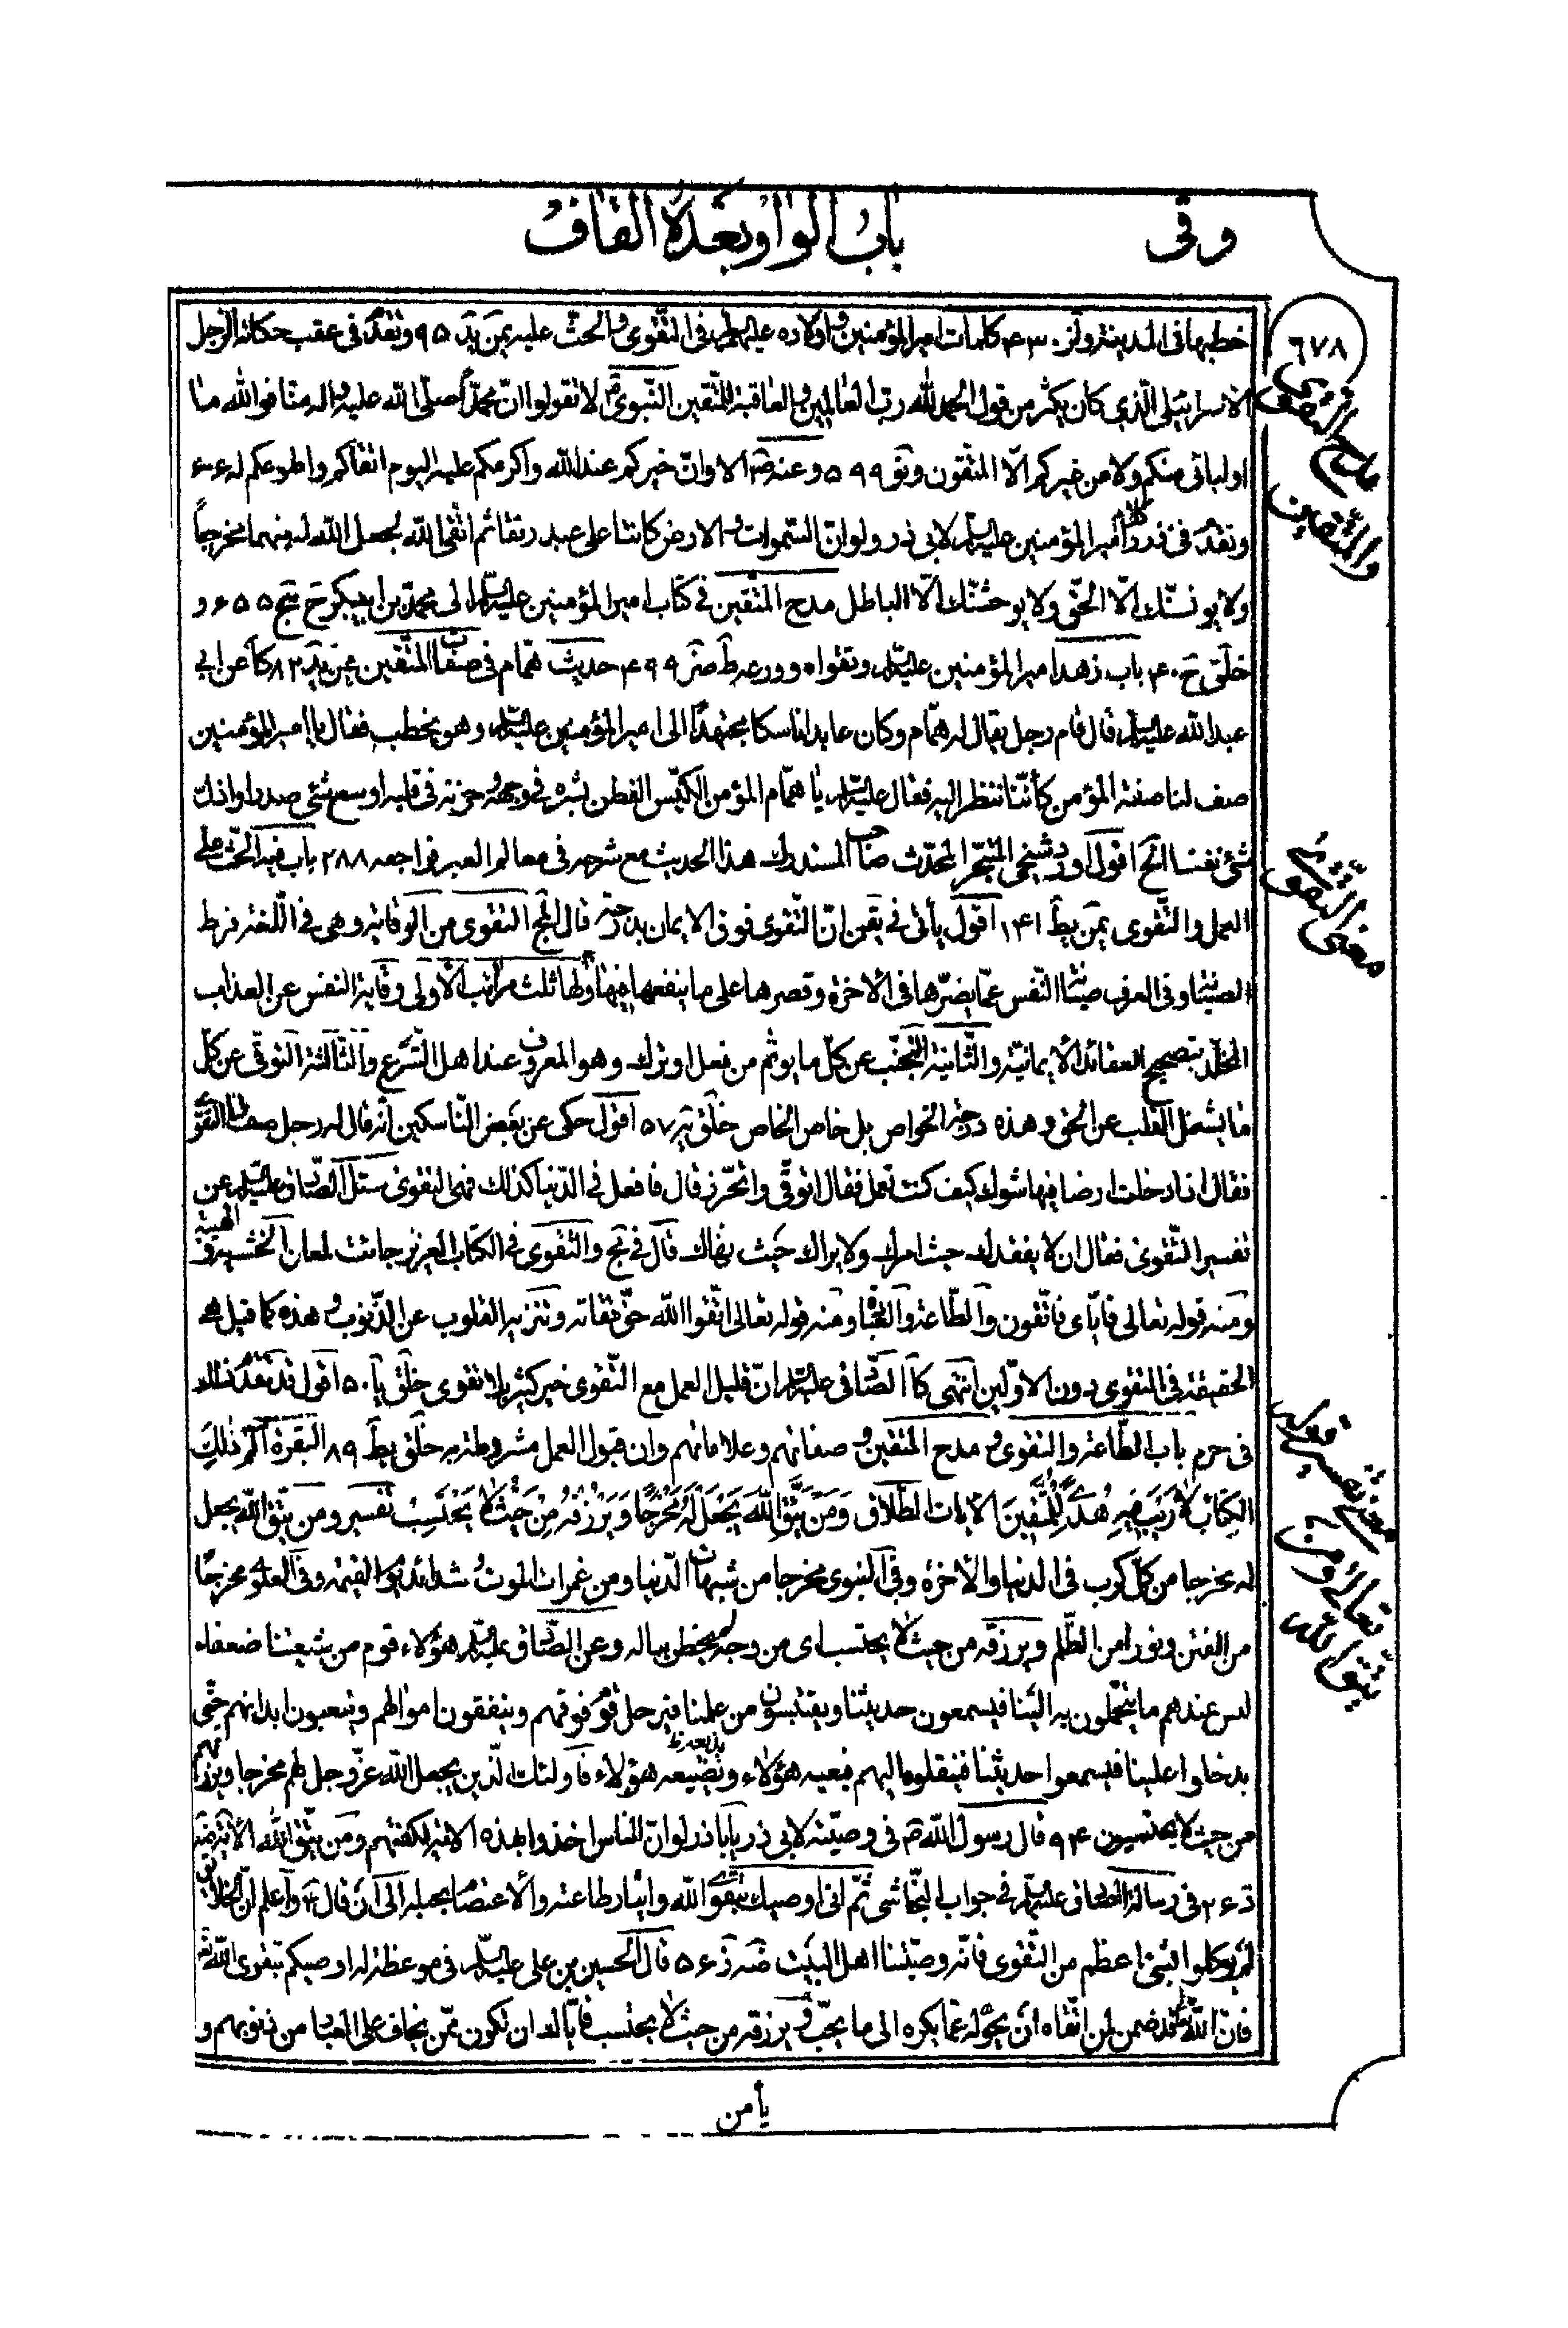 وقى
باب الواو بعده القاف
٦٧٨
خطبها فى المدينة ولز ۴۳۰ كلمات امير المؤمنين واولاده عليهم السلام فى التقوى والحث عليه يمن يد ٩۵ وتقدم فى عقب حكاية الرجل
الاسرائيلى الذي كان يكثر من قول الحمد لله رب العالمين والعاقبة للمتقين النبوى ص لا تقولوا ان محمداً صلى الله عليه واله منا فوالله ما
اوليائى منكم ولا من غيركم الا المتقون ونو ۵٩٩ وعنه ص الا وان خيركم عند الله واكرمكم عليه اليوم اتقاكم واطوعكم له
وتقدم فى ذرر كلام امير المؤمنين عليه السلام لابى ذر ولو ان السموات والارض كانتا على عبد رتقا ثم اتقى الله لجعل الله له منهما مخرجاً
ولا يونسنك الا الحق ولا يوحشنك الا الباطل مدح المتقين فى كتاب امير المؤمنين عليه السلام الى محمد بن ابيبكر ح سج ۶۵۵ و
خلق ح ۴۰ باب زهد امير المؤمنين عليه السلام وتقواه وورعه ط صز ۴٩٩ حديث همام فى صفات المتقين يمن يد ٨٣ كا عن ابي
عبد الله عليه السلام قال قام رجل يقال له همام وكان عابدا ناسكا مجتهدًا الى امير المؤمنين عليه السلام وهو يخطب فقال يا امير المؤمنين
صف لنا صفة المؤمن كأننا ننظر اليه فقال عليه السلام يا همام المؤمن الكيس الفطن بشره فى وجهه وحزنه فى قلبه اوسع شئ صدرا واذل
شئ نفسا الخ اقول اورد شيخى المتبحر المحدث صاحب المستدرك هذا الحديث مع شرحه فى معالم العبر فراجعه ٢٨٨ باب فيه الحث على
العمل والتقوى يمن يط ١۴١ اقول يأتى فى يقن ان التقوى فوق الايمان بدرجة قال المج التقوى من الوقاية وهى فى اللغة فرط
الصيانة وفى العرف صيانة النفس عما يضرها فى الاخرة وقصرها على ما ينفعها فيها ولها ثلث مراتب الاولى وقاية النفس عن العذاب
المخلد بتصحيح العقائد الايمانية والثانية التجنب عن كل ما يوثم من فعل او ترك وهو المعروف عند اهل الشرع والثالثة التوقى عن كل
ما يشغل القلب عن الحق وهذه درجة الخواص بل خاص الخاص خلق ير ۵٧ اقول حكى عن بعض الناسكين انه قال له رجل صف لنا التقوى
فقال اذا دخلت ارضا فيها شوك كيف كنت تعمل فقال اتوقى واتحرز قال فافعل فى الدنيا كذلك فهى التقوى سئل الصادق عليه السلام عن
تفسير التقوى فقال ان لا يفقدك حيث امرك ولا يراك حيث نهاك قال فى مج والتقوى فى الكتاب العزيز جائت لمعان الخشية والهيبة
ومنه قوله تعالى فاياى فاتقون والطاعة والعبادة ومنه قوله تعالى اتقوا الله حق تقاته وتنزيه القلوب عن الذنوب وهذه كما قيل هى
الحقيقة فى التقوى دون الاولين انتهى كا الصادق عليه السلام ان قليل العمل مع التقوى خير كثير بلا تقوى خلق يا ١۵٠ اقول قد تقدم ذلك
فى حرم باب الطاعة والتقوى ومدح المتقين وصفاتهم وعلاماتهم وان قبول العمل مشروطة به خلق يط ٨٩ البقرة الم ذلك
الكتاب لا ريب فيه هدى للمتقين الايات الطلاق ومن يتق الله يجعل له مخرجا ويرزقه من حيث لا يحتسب تفسير ومن يتق الله يجعل
له مخرجا من كل كرب فى الدنيا والاخرة وفى النبوى مخرجا من شبهات الدنيا ومن غمرات الموت وشدائد يوم القيمة وفى العلوى مخرجا
من الفتن ونورا من الظلم ويرزقه من حيث لا يحتسب اى من وجه لم يخطر بباله وعن الصادق عليه السلام هؤلاء قوم من شيعتنا ضعفاء
ليس عندهم ما يتحملون به الينا فيسمعون حديثنا ويقتبسون من علمنا فيرحل قوم فوقهم وينفقون اموالهم ويتعبون ابدانهم حتى
يدخلوا علينا فيسمعوا حديثنا فينقلوه اليهم فيعيه هؤلاء وتضيعه هؤلاء فاولئك الذين يجعل الله عز وجل لهم مخرجا ويرزقهم
من حيث لا يحتسبون ٩۴ قال رسول الله ص فى وصيته لابى ذر يا اباذر لو ان الناس اخذوا بهذه الاية لكفتهم ومن يتق الله الاية
فى رسالة الصادق عليه السلام فى جواب النجاشى ثم انى اوصيك بتقوى الله وايثار طاعته والاعتصام بحبله الى ان قال واعلم ان الخلائق
لم يوكلوا بشئ اعظم من التقوى فانه وصيتنا اهل البيت ضه ذ ۵۶ قال الحسين بن على عليه السلام فى موعظة له اوصيكم بتقوى الله
فان الله قد ضمن لمن اتقاه ان يحوله عما يكره الى ما يحب ويرزقه من حيث لا يحتسب فاياك ان تكون ممن يخاف على العباد من ذنوبهم و
يأمن
مدح التقوى والمتقين
معنى التقوى
تفسير قوله تعالى ومن يتق الله